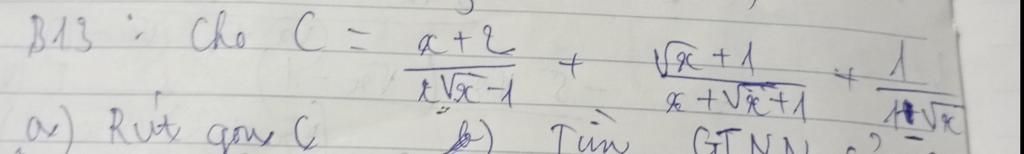 B13 : Cho C = x + 2 / x√x - 1 + √x + 1 / x + √x + 1 + 1 / 1 - √x
a) Rút gọn C b) Tìm GTNN